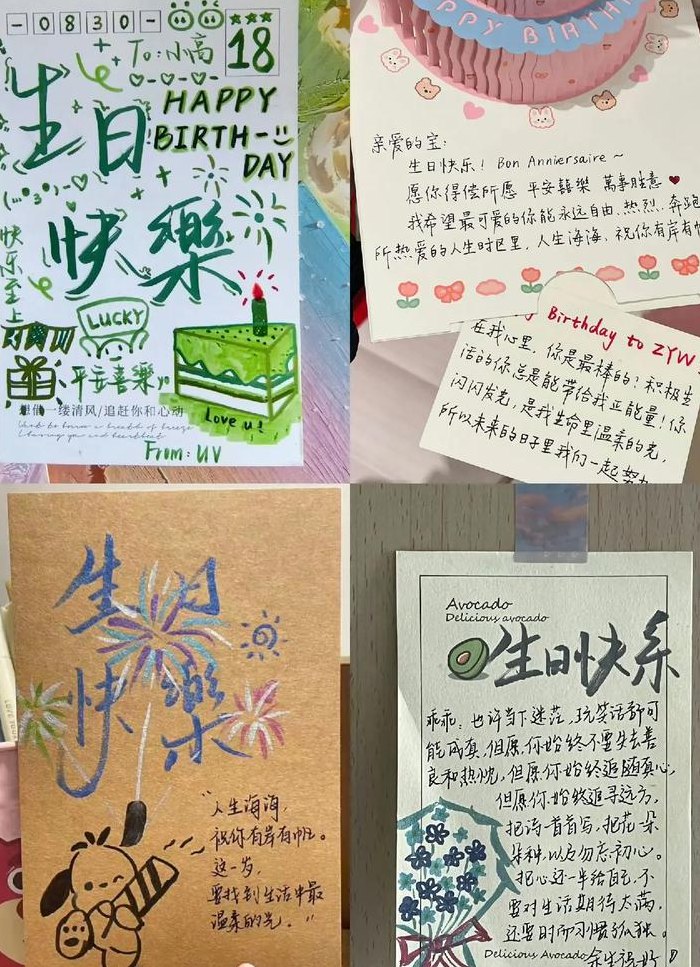 -0830-
To:小高
18
生日
快樂
HAPPY
BIRTH-
DAY
快乐至上
LUCKY
平安喜樂
想借一缕清风/追赶你和心动
Love u!
From: UV
HAPPY BIRTH
亲爱的宝:
生日快乐! Bon Anniersaire ~
愿你得偿所愿 平安喜樂 萬事胜意
我希望最可爱的你能永远自由、热烈、奔跑
所热爱的人生时区里,人生海海、祝你有岸有帆
Birthday to ZYW
在我心里,你是最棒的?积极生
活的你总是能带给我正能量!你
闪闪发光,是我生命里温柔的光,
所以未来的日子里我们一起努力
生日
快樂
"人生海海,
祝你有岸有帆。
这一岁,
要找到生活中最
温柔的光。"
Avocado
Delicious avocado
生日快乐
乖乖,也许当下迷茫,玩笑话都可
能成真,但愿你始终不要失去善
良和热忱,但愿你始终追随真心,
但愿你始终追寻远方,
把诗一首首写,把花一朵
朵种,以后勿忘初心。
把心还一半给自己,不
要对生活期待太满,
还要时而习惯孤独。
Delicious Avocado 余生说好